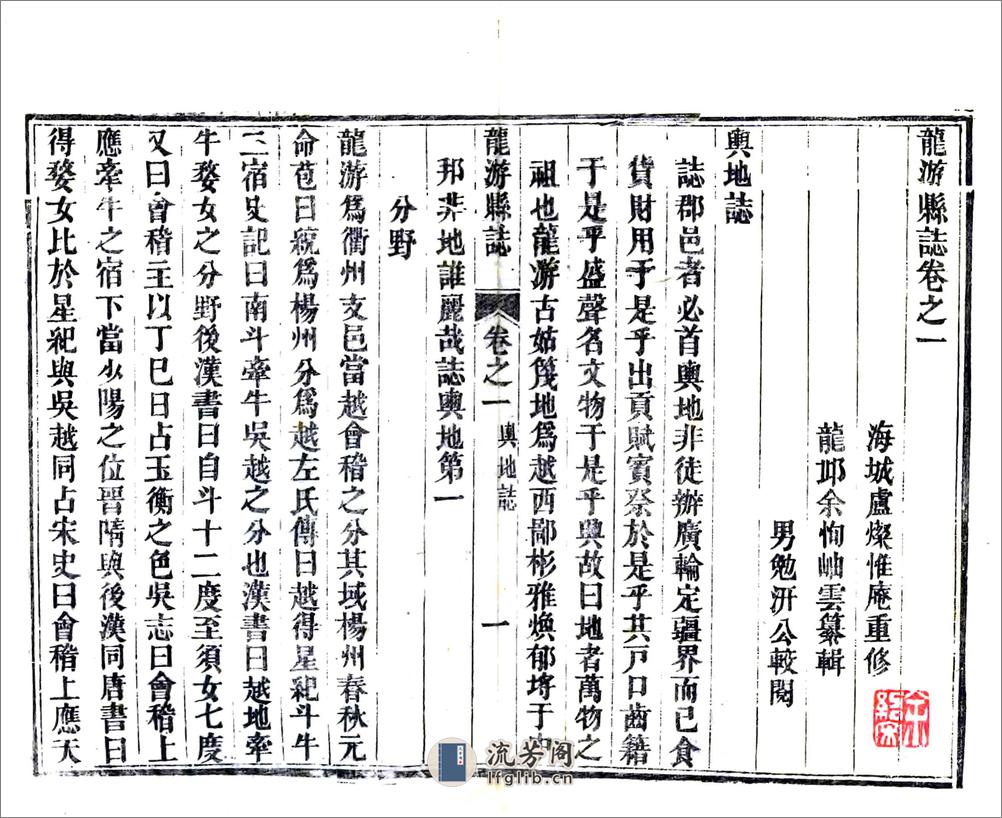 龍游縣誌卷之一
海城盧燦惟庵重修
龍邱余恂岫雲纂輯
男勉汧公較閱
輿地誌
誌郡邑者必首輿地非徒辦廣輪定疆界而已食
貨財用于是乎出貢賦賓祭於是乎共戸口齒籍
于是乎盛聲名文物于是乎興故曰地者萬物之
祖也龍游古姑篾地爲越西鄙彬雅煥郁埒于
龍游縣誌
卷之一
輿地誌
一
邦非地誰麗哉誌輿地第一
分野
龍游爲衢州支邑當越會稽之分其域楊州春秋元
命苞曰爲楊州分爲越左氏傳曰越得星紀斗牛
二宿史記曰南斗牽牛吳越之分也漢書曰越地牽
牛婺女之分野後漢書曰自斗十二度至須女七度
又曰會稽主以丁巳日占玉衡之色吳志曰會稽上
應牽牛之宿下當少陽之位晋隋與後漢同唐書曰
得婺女比於星紀與吳越同占宋史曰會稽上應天
流芳阁
lfglib.cn